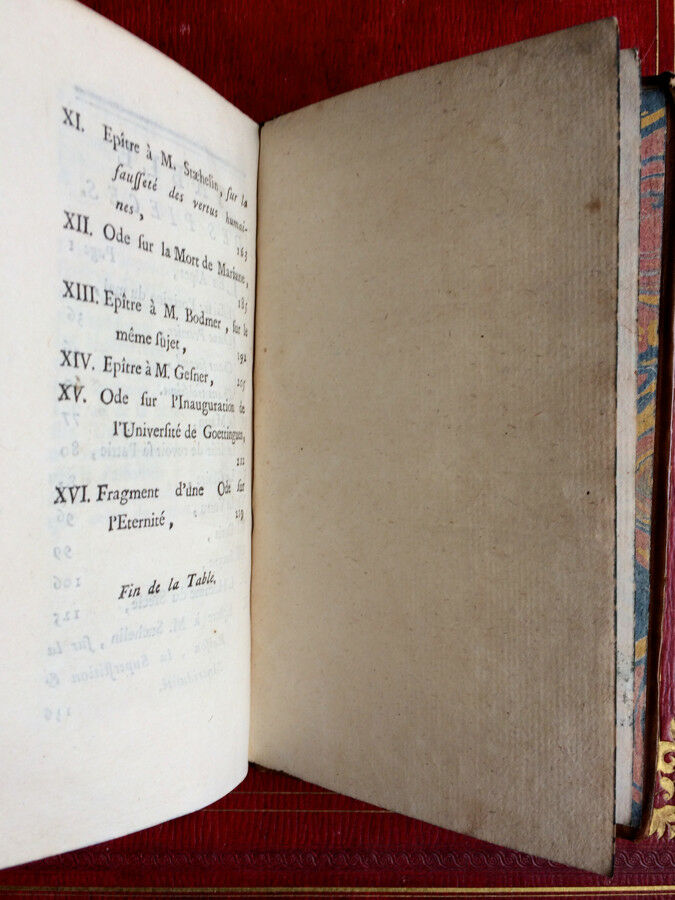 XI. Epître à M. Stæhelin, ſur la
fauſſeté des vertus humai-
nes, 163
XII. Ode ſur la Mort de Mariane,
185
XIII. Epître à M. Bodmer, ſur le
même ſujet, 192
XIV. Epître à M. Geſner,
XV. Ode ſur l'Inauguration de
l'Univerſité de Goettingues,
212
XVI. Fragment d'une Ode ſur
l'Eternité, 219
Fin de la Table.